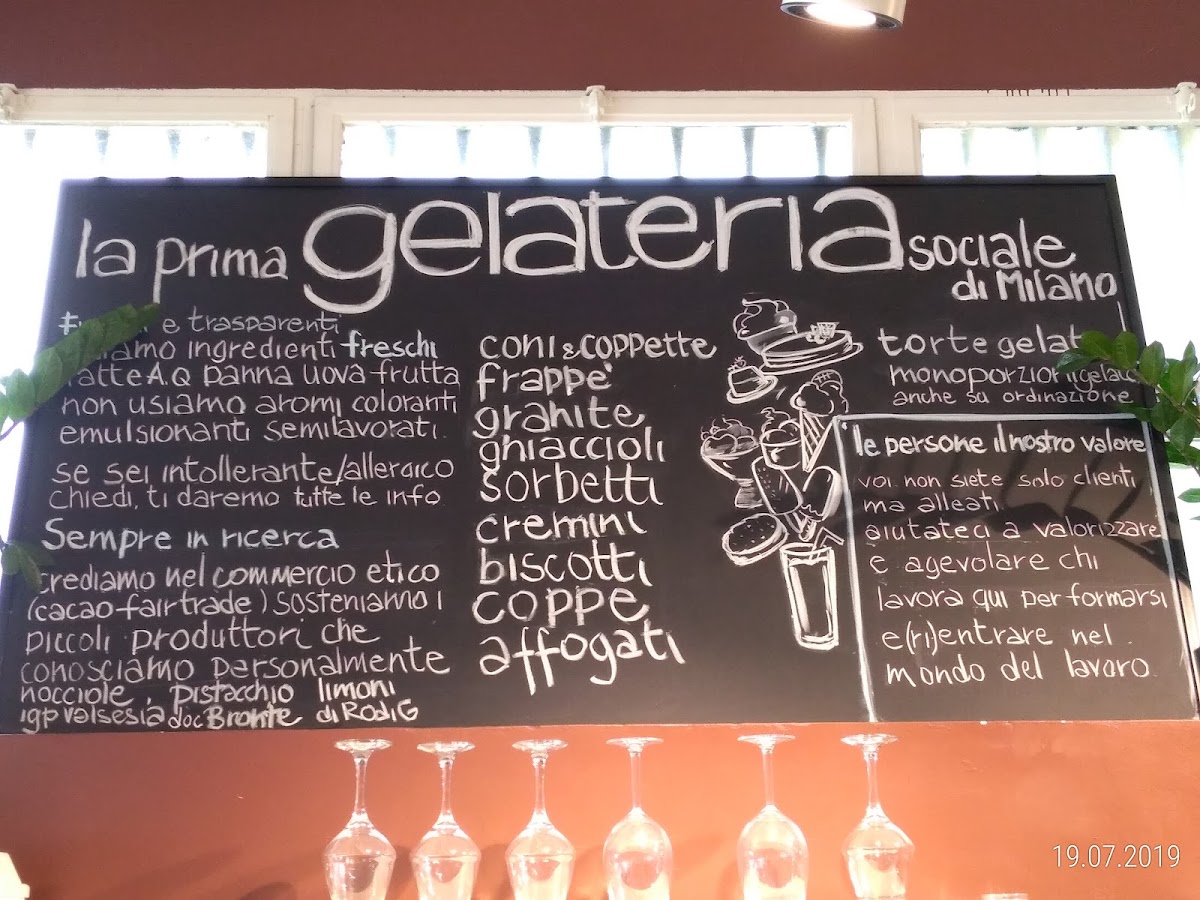 la prima gelateria sociale
di Milano
e trasparenti
ingredienti freschi
latte A.Q panna uova frutta
non usiamo aromi coloranti
emulsionanti semilavorati.
se sei intollerante/allergico
chiedi, ti daremo tutte le info
Sempre in ricerca
crediamo nel commercio etico
(cacao fairtrade) sosteniamo i
piccoli produttori che
conosciamo personalmente
nocciole, pistacchio limoni
igp valsesia doc Bronte di Rodi G
coni & coppette
frappe'
granite
ghiaccioli
sorbetti
cremini
biscotti
coppe
affogati
torte
monoporzioni
anche su ordinazione
le persone il nostro valore
voi non siete solo clienti
ma alleati.
aiutateci a valorizzare
e agevolare chi
lavora qui per formarsi
e(ri)entrare nel
mondo del lavoro.
19.07.2019